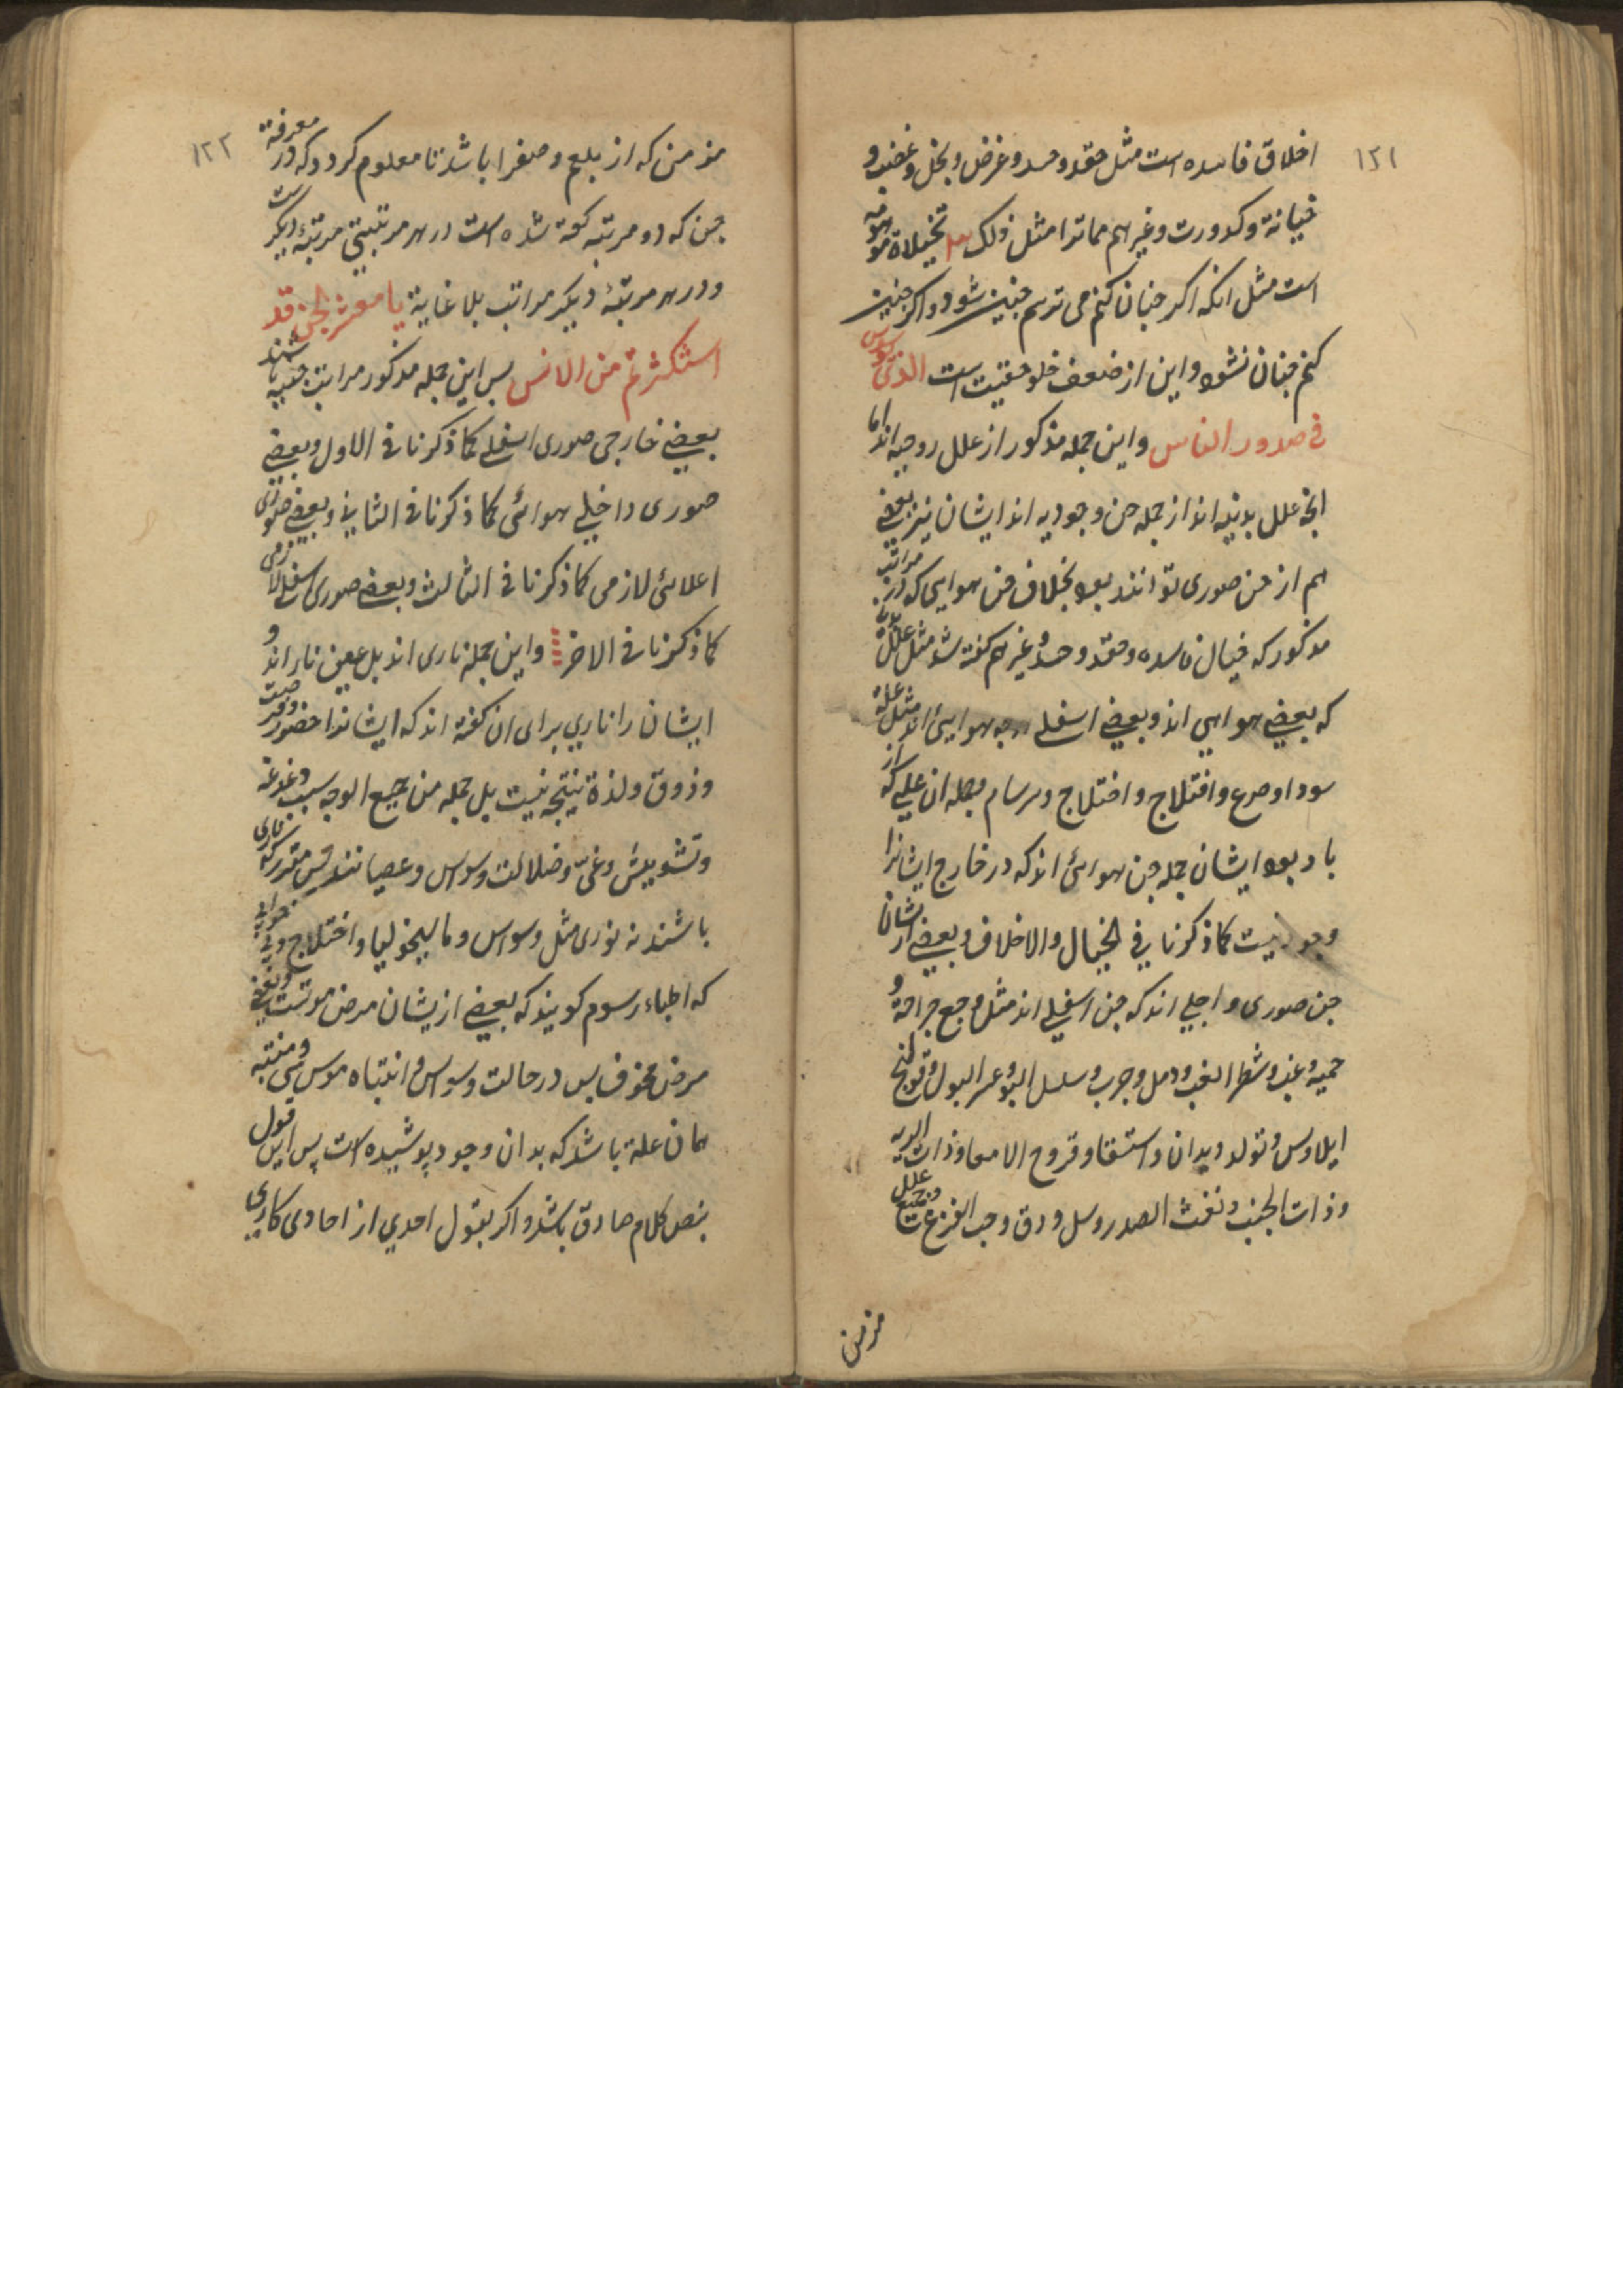 ١٢١
اخلاق فاسده است مثل حقد و حسد و غرض و بخل و غضب و
خیانة و کدورت و غیرهم مماترا مثل ذلک تخیلاة موهومه
است مثل انکه اکر چنان کنم می ترسم چنین شود و اکر چنین
کنم چنان نشود و این از ضعف خلوصیت است الذی یوسوس
فی صدور الناس و این جمله مذکور از علل روحیه اند اما
انچه علل بدنیه اند از جمله جن وجودیه اند ایشان نیز بعضی
هم از جن صوری توانند بود بخلاف جن هوایی که در مراتب
مذکور که خیال فاسده و حقد و حسد و غیرهم کفته شد مثل علل بدنیة
که بعضی هوایی اند و بعضی اسفلی اما جن هوایی اند مثل علة
سودا و صرع و اختلاج و اختلاج و سرسام و جمله ان عللی که از
باد بود ایشان جمله جن هوائی اند که در خارج ایشانرا
وجود نیست کما ذکرنا فی الخیال و الاخلاق و بعضی از ایشان
جن صوری داخلی اند که جن اسفلی اند مثل وجع جراحة و
حمیه و غب و شطر الغب و دمل و جرب و سلسل البول و عسر البول و قولنج
ایلاوس و تولد دیدان و استسقا و قروح الامعا و ذات الریه
و ذات الجنب و نفث الصدر و سل و دق و حب القرع و جمیع علل
مزمن
١٢٢
مزمن که از بلغم و صفرا باشد تا معلوم کردد که در معرفة
جن که دو مرتبه کفته شده است در هر مرتبتی مرتبهٔ دیکر است
و در هر مرتبهٔ دیکر مراتب بلا غایة یا معشر الجن قد
استکثرتم من الانس پس این جمله مذکور مراتب جنیه باشند
بعضی خارجی صوری اسفلی کما ذکرنا فی الاول و بعضی
صوری داخلی هوائی کما ذکرنا فی الثانی و بعضی صوری
اعلائی لازمی کما ذکرنا فی الثالث و بعضی صوری اسفلی لازمی
کما ذکرنا فی الاخر و این جمله ناری اند بل عین نار اند و
ایشان را ناری برای ان کفته اند که ایشانرا حضور و جمعیت
و ذوق و لذة نتیجه نیست بل جمله من جمیع الوجه سبب دغدغه
و تشویش و غی و ضلالت و وسواس و عصیانند پس مقرر که ناری
باشند نه نوری مثل وسواس و مالیخولیا و اختلاج
که اطباء رسوم کویند که بعضی ازیشان مرض موتست و بعضی
مرض مخوف پس در حالت وسواس و انتباه موسوس و منتبه
همان علة باشد که بدان وجود پوشیده است پس این قول
بنص کلام صادق باشد و اکر بقول احدی از احادی کاذب